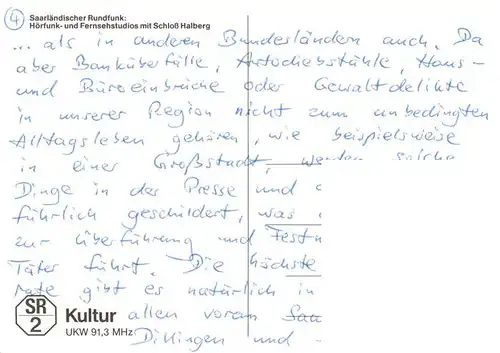 4
Saarländischer Rundfunk:
Hörfunk- und Fernsehstudios mit Schloß Halberg
... als in anderen Bundesländern auch. Da
aber Banküberfälle, Autodiebstähle, Haus-
und Büroeinbrüche oder Gewaltdelikte
in unserer Region nicht zum unbedingten
Alltagsleben gehören, wie beispielsweise
in einer Großstadt, werden solche
Dinge in der Presse und
führlich geschildert, was
zur Überführung und Festn
Täter führt. Die höchste
rate gibt es natürlich in
allen voran Saa
Dillingen und -
SR
2
Kultur
UKW 91,3 MHz